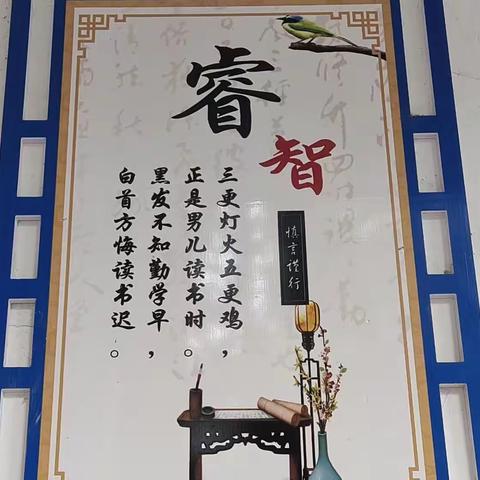 睿
智
慎言谨行
三更灯火五更鸡，
正是男儿读书时。
黑发不知勤学早，
白首方悔读书迟。